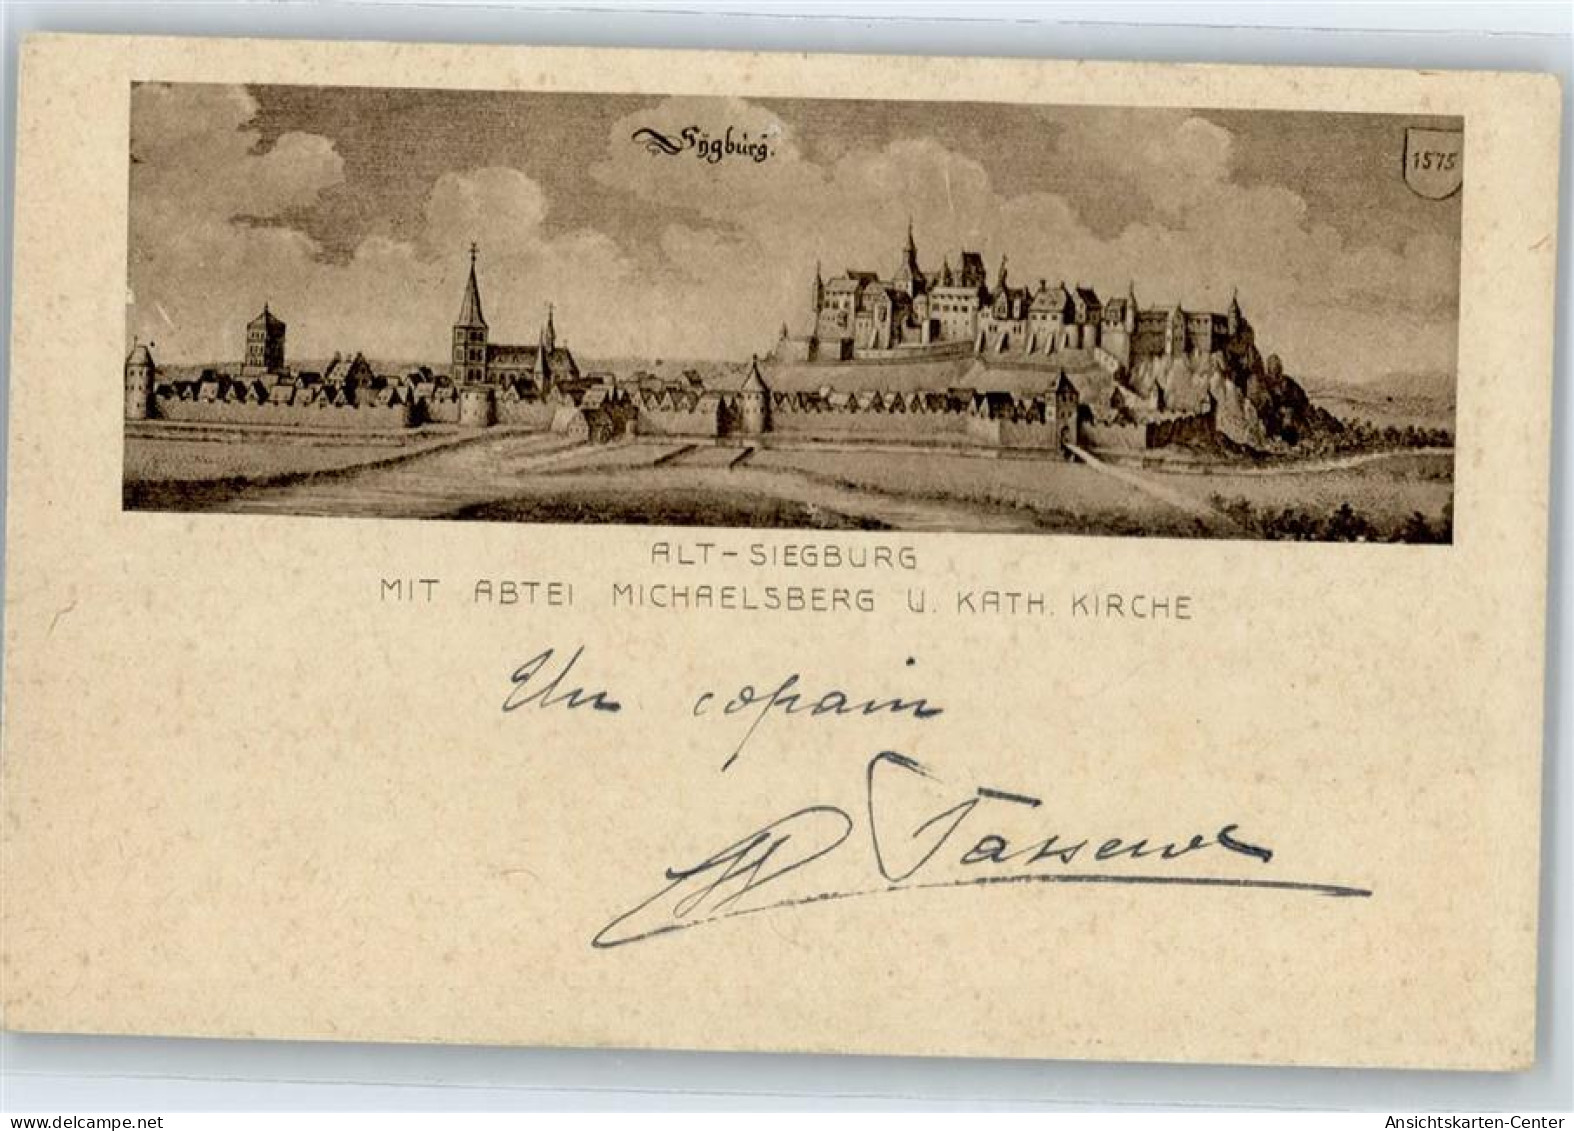 Sÿgbürg.
1575
ALT-SIEGBURG
MIT ABTEI MICHAELSBERG U. KATH. KIRCHE
Un copain
oldthing.de
Ansichtskarten-Center